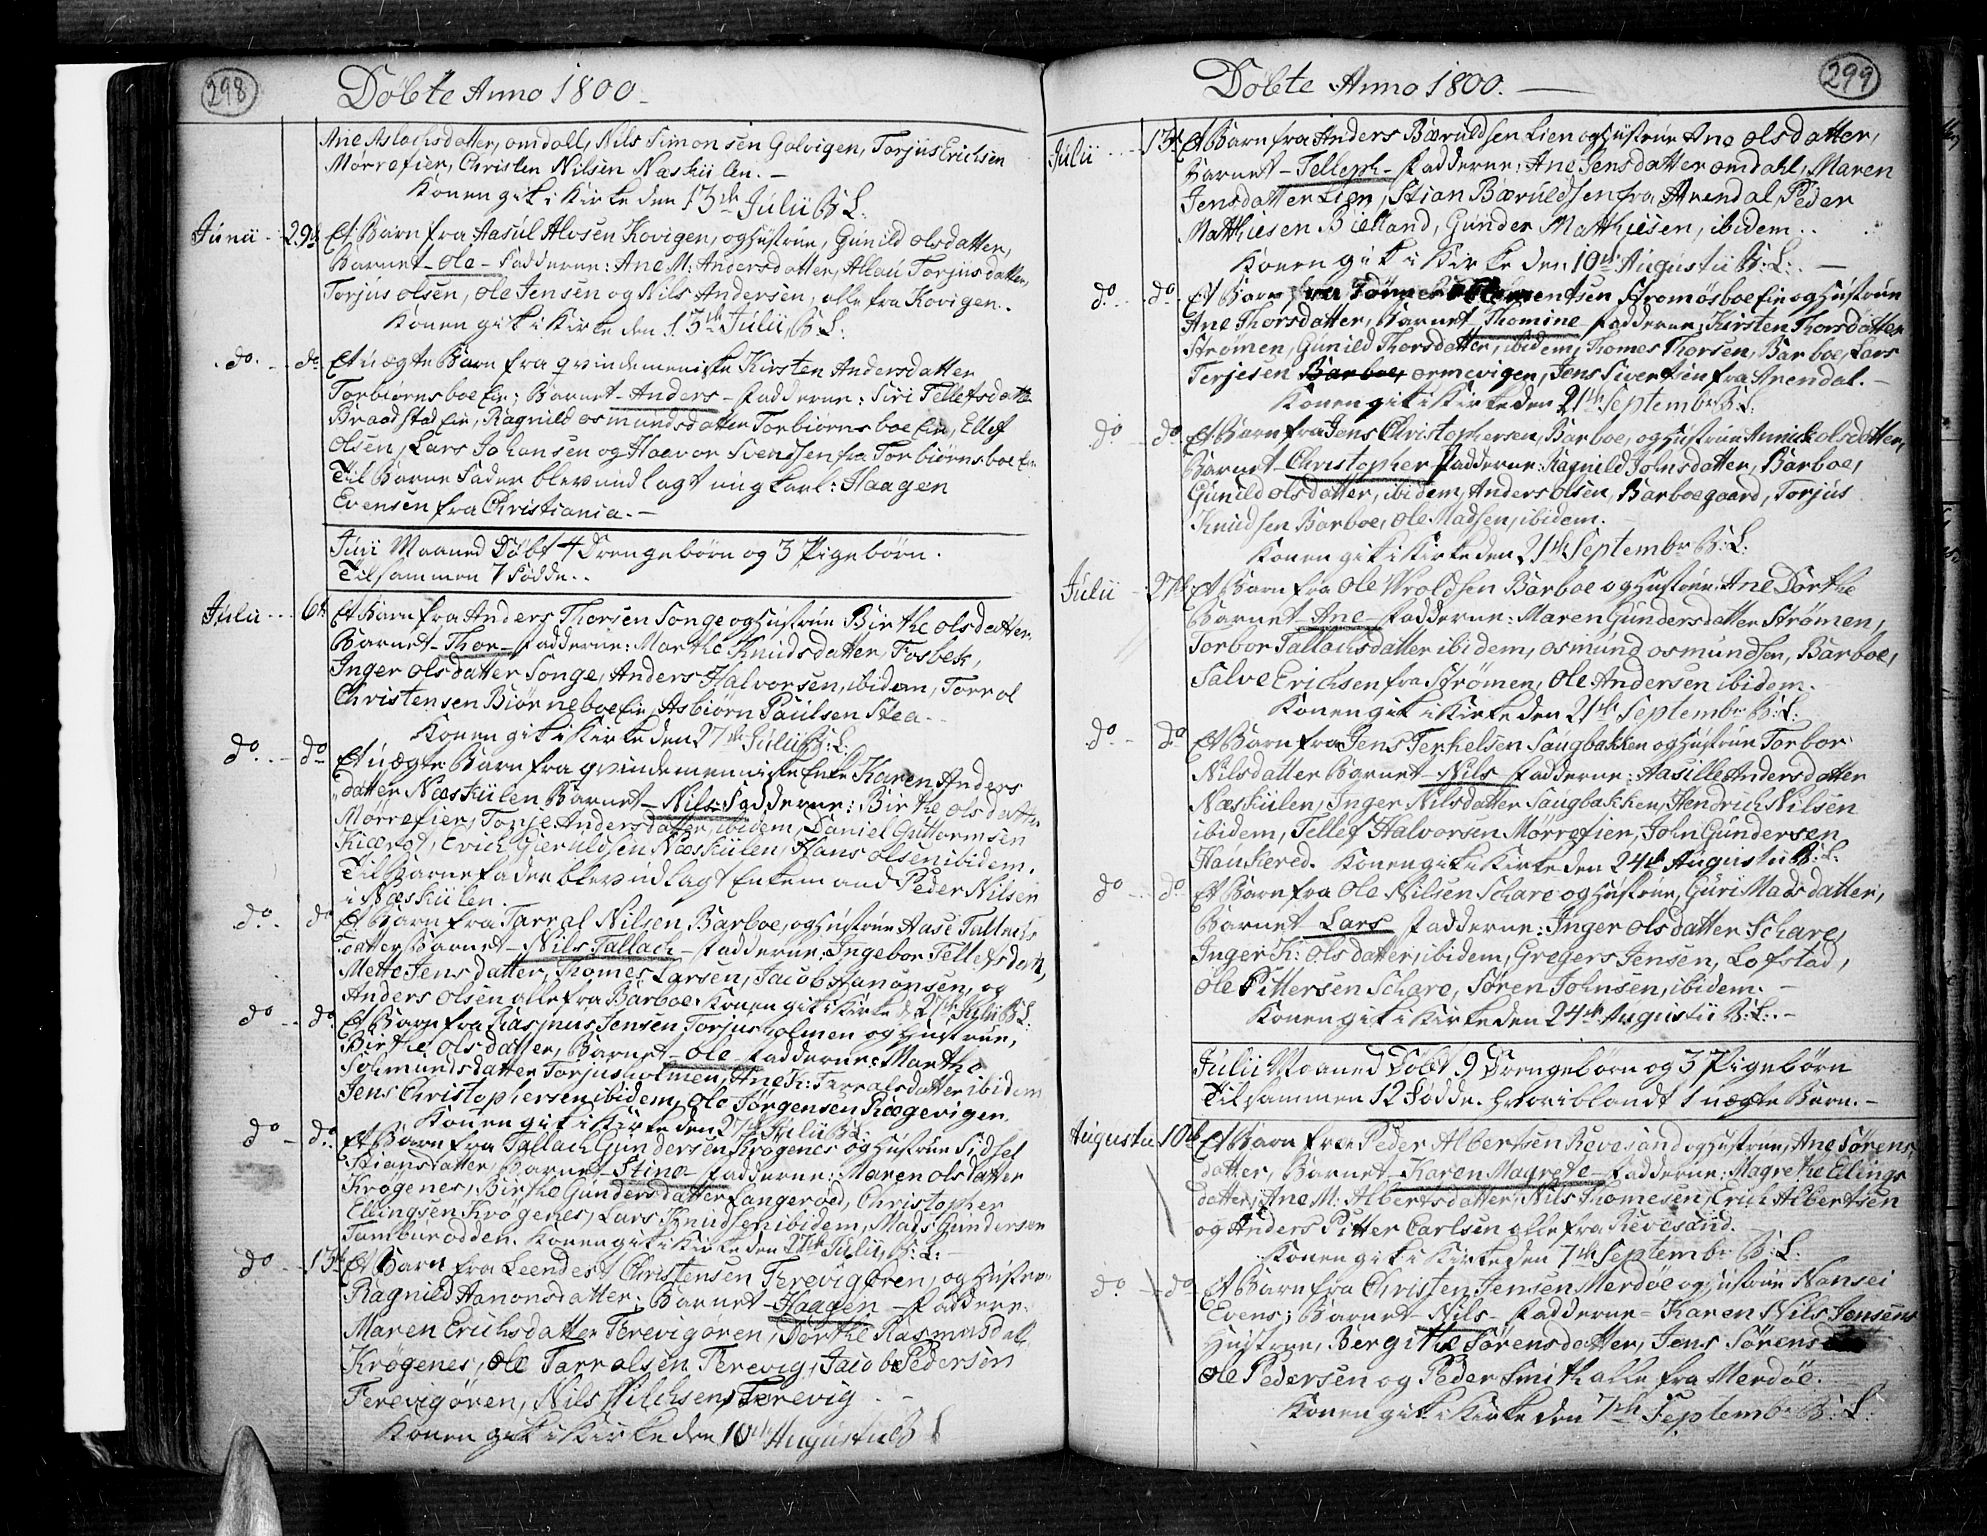 298
Døbte Anno 1800.
Ane Aslachsdatter, omdall, Nils Simonsen Galvigen, Torjus Erichsen
Mørrefier, Christen Nilsen Næskiilen.
Konen gik i Kirke den 13de Julii B:L:
Junii 29de Et Barn fra Aasul Alvsen Kovigen, og Hustrue, Gunild olsdatter,
Barnet - Ole - Fadderne: Ane M: Andersdatter, Torjusdatter,
Torjus olsen, Ole Jensen og Nils Andersen, alle fra Kovigen.
Konen gik i Kirke den 13de Julii B:L:
do. do Et uægte Barn fra qvindemeniske Kirsten Andersdatter
Torbiørnsboe Ein; Barnet - Anders - Fadderne: Siri Tellefsdatter
Braadstad Ein, Ragnild osmundsdatter Torbiørnsboe Ein, Ellef
Olsen, Lars Johansen og Haavor Svendsen fra Torbiørnsboe Ein
Til Barne Fader blev udlagt ungkarl: Haagen
Evensen fra Christiania.
Juni Maaned Døbt 4 Drengebørn og 3 Pigebørn.
Tilsammen 7 Fødde.
Julii 6te Et Barn fra Anders Thorsen Songe og Hustrue Birthe olsdatter,
Barnet - Thor - Fadderne: Marthe Knudsdatter, Fosbek,
Inger olsdatter Songe, Anders Halvorsen, ibidem, Torrol
Christensen Biørneboe Ein, Asbiørn Paulsen Stea.
Konen gik i Kirke den 27de Julii B:L:
do. do Et uægte Barn fra qvindemenniske Enke Karen Anders
datter Næskiilen Barnet - Nils - Fadderne: Birthe olsdatter
Mørrefier, Tonje Andersdatter, ibidem, Daniel Guttormsen
Kierød, Erich Gieruldsen Næskiilen, Hans olsen ibidem.
Til Barnefader blev udlagt Enkemand Peder Nilsen
i Næskiilen.
do. do Et Barn fra Tarral Nilsen, Barboe, og Hustrue Aase Tallachs
datter Barnet - Nils Tallach - Fadderne: Ingebor Tellefsdatter,
Mette Jensdatter, Thomes Larsen, Jacob Hanonsen, og
Anders olsen alle fra Barboe. Konen gik i Kirke d: 27de Julii B:L:
do do. Et Barn fra Rasmus Jensen Torjusholmen og Hustrue,
Birthe olsdatter, Barnet - Ole - Fadderne: Marthe
Solmundsdatter Torjusholmen, Ane K: Tarralsdatter ibidem
Jens Christophersen ibidem, Ole Jørgensen Rægevigen.
Konen gik i Kirke den 27de Julii B:L:
do - do. Et Barn fra Tallach Gundersen Krøgenes og Hustrue Sidsel
Stiansdatter, Barnet - Stine - Fadderne: Maren olsdatter
Krøgenes, Birthe Gundersdatter Langerød, Christopher
Ellingsen Krøgenes, Lars Knudsen ibidem, Mads Gundersen
Tamburodden. Konen gik i Kirke den 27de Julii, B:L:
do 13de Et Barn fra Leendert Christensen Terevigøren, og Hustrue
Ragnild Hanonsdatter; Barnet - Haagen - Fadderne:
Maren Erichsdatter Terevigøren, Dorthe Rasmusdatt.
Krøgenes, Ole Tarralsen Terevig, Jacob Pedersen
Terevigøren, Nils Terevig
Konen gik i Kirke den 10de Augustii B L
299
Døbte Anno 1800.
Julii 13de Et Barn fra Anders Bæruldsen Lien og Hustrue Ane olsdatter,
Barnet - Telleph - Fadderne: Ane Jensdatter omdahl, Maren
Jensdatter Lien, Stian Bæruldsen fra Arendal, Peder
Matthiesen Bielland, Gunder Matthiesen, ibidem.
Konen gik i Kirke den 10de Augustii B:L:
do. do. Et Barn fra Tønnes Clementsen Strømsboe Ein og Hustrue
Ane Thorsdatter, Barnet - Thomine - Fadderne: Kirsten Thorsdatter
Strømen, Gunild Thorsdatter, ibidem, Thomes Thorsen, Barboe, Lars
Terjesen Barboe, ormevigen, Jens Sivertsen fra Arendal.
Konen gik i Kirke den 21de Septembr B:L:
do do. Et Barn fra Jens Christophersen, Barboe, og Hustrue Annich olsdatter,
Barnet - Christopher Fadderne: Ragnild Johnsdatter, Barboe,
Gunild olsdatter, ibidem, Anders olsen, Barboegaard, Torjus
Knudsen Barboe, Ole Madsen, ibidem.
Konen gik i Kirke den 21de Septembr B:L:
Julii 27de Et Barn fra Ole Wroldsen Barboe og Hustrue Ane Dorthe
Barnet - Ane - Fadderne: Maren Gundersdatter Strømen,
Torbor Tallachsdatter ibidem, osmund osmundsen, Barboe,
Salve Erichsen fra Strømen, Ole Andersen ibidem.
Konen gik i Kirke den 21de Septembr B:L:
do. do. Et Barn fra Jens Terkelsen Saugbakken og Hustrue Torbor
Nilsdatter Barnet - Nils - Fadderne: Aasille Andersdatter
Næskiilen, Inger Nilsdatter Saugbakken, Hendrich Nilsen
ibidem, Tellef Halvorsen Mørrefier, John Gundersen
Haukered. Konen gik i Kirke den 24de Augustii B:L:
do do. Et Barn fra Ole Nilsen Schare og Hustrue, Guri Madsdatter,
Barnet - Lars - Fadderne: Inger olsdatter Schare,
Inger K: olsdatter, ibidem, Gregers Jensen, Lofstad,
Ole Pittersen Schare, Søren Johnsen, ibidem.
Konen gik i Kirke den 24de Augustii B:L:
Julii Maaned Døbt 9 Drengebørn og 3 Pigebørn
Tilsammen 12 Fødde. Hvoriblandt 1 uægte Barn.
Augustii 10de Et Barn fra Peder Albertsen Revesand og Hustrue, Ane Sørens
datter, Barnet - Karen Magrete - Fadderne: Magrethe Ellings
datter, Ane M: Albertsdatter, Nils Thomesen, Erich Albertsen
og Anders Pitter Carlsen alle fra Revesand.
Konen gik i Kirke den 7de Septembr B:L:
do do Et Barn fra Christen Jensen Merdøe og Hustrue Nansei
Evens; Barnet - Nils - Fadderne - Karen Nils Jensens
Hustrue, Bergithe Sørensdatter, Jens Sørens
Ole Pedersen og Peder Smith alle fra Merdøe.
Konen gik i Kirke den 7de Septembr B:L: